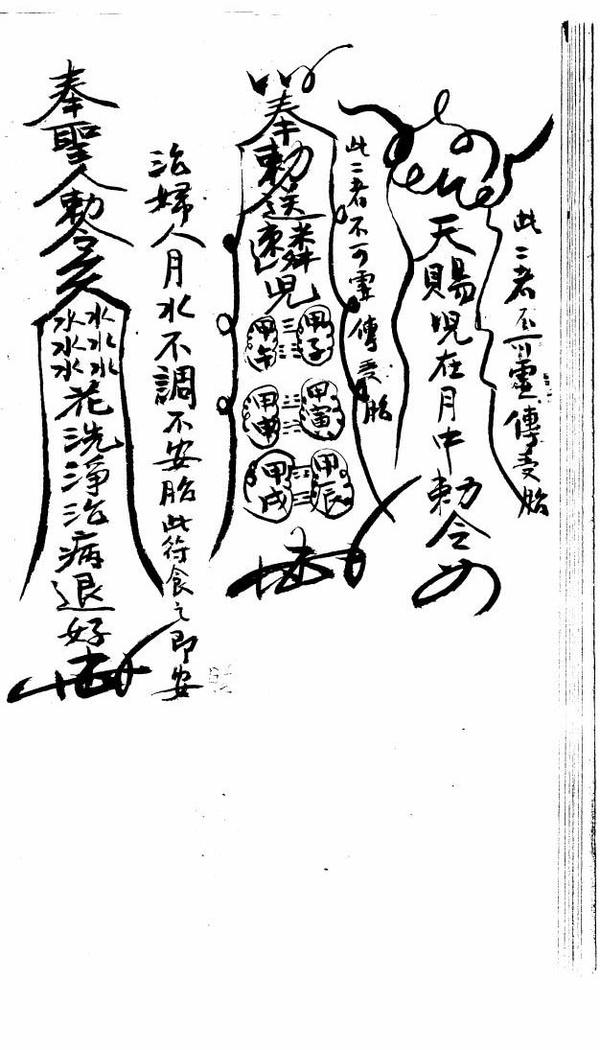 此二者不可靈傳受胎
天賜児在月中勅令
此二者不可靈傳受胎
奉勅送麟児
甲子 甲午
甲寅 甲申
甲辰 甲戌
治婦人月水不調不安胎此符食之即安
奉聖人勅令
水水水水水水花洗淨治病退好